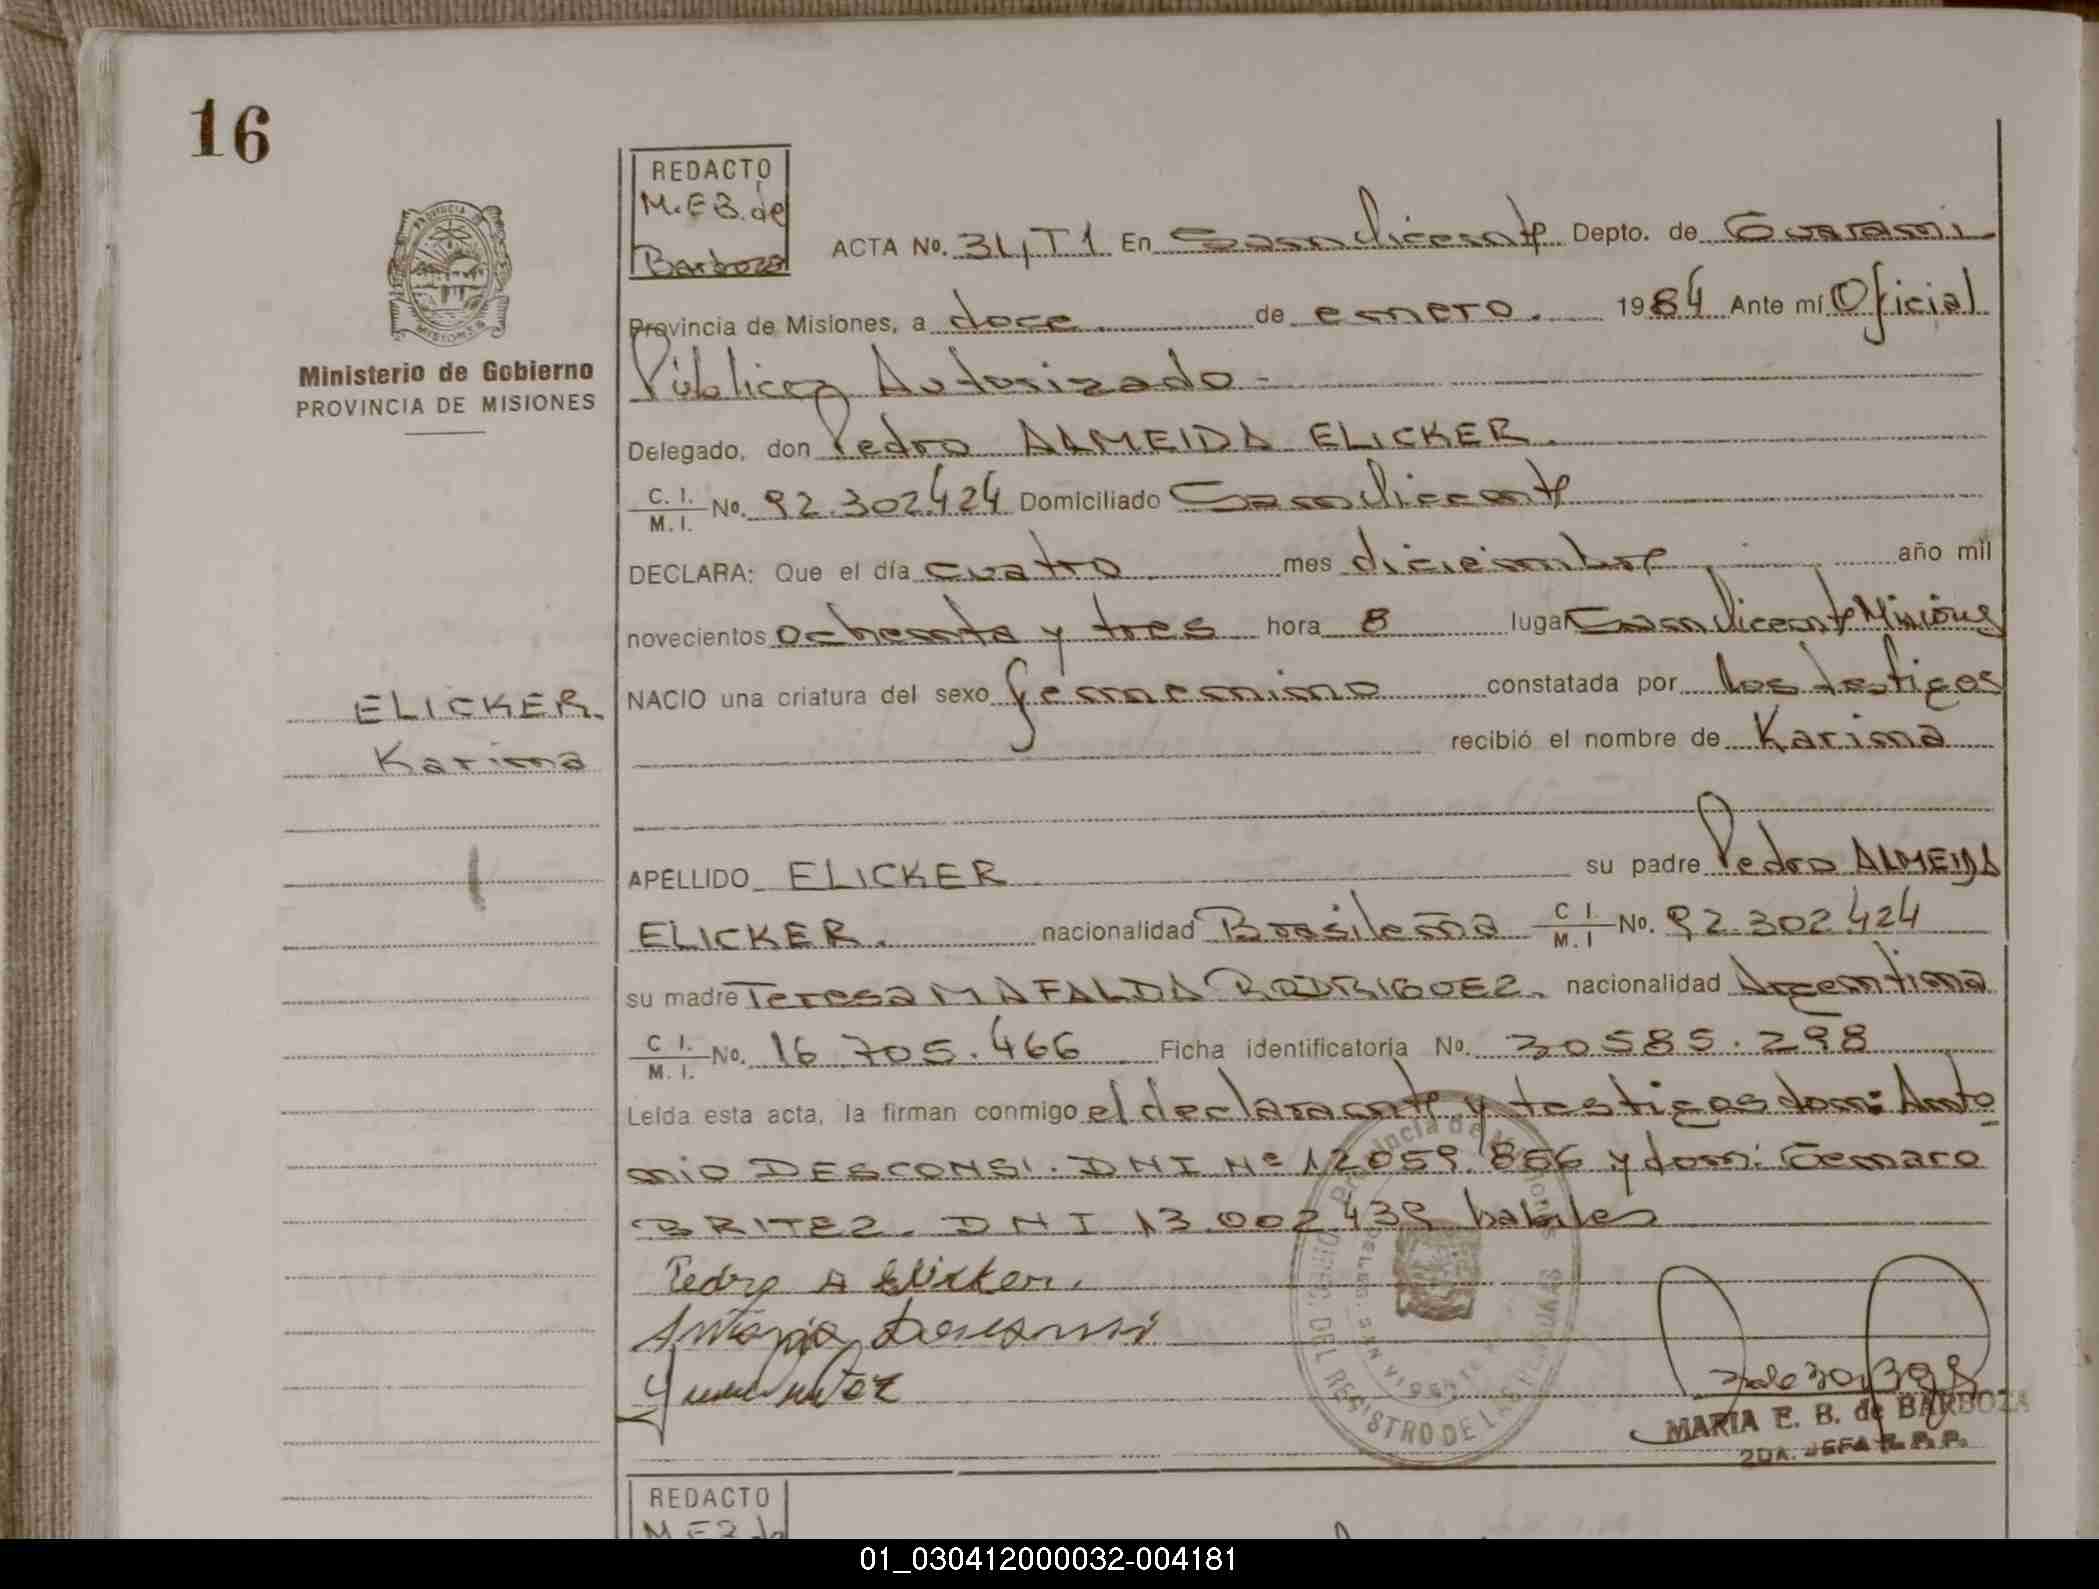 16
REDACTO
M.E B. de
Barboza
ACTA No. 34, T1 En San Vicente Depto. de Guarani
Provincia de Misiones, a doce de enero. 1984 Ante mí Oficial
Público Autorizado -
PROVINCIA DE
MISIONES
Ministerio de Gobierno
PROVINCIA DE MISIONES
Delegado, don Pedro ALMEIDA ELICKER.
C. I. / M. I. No. 92.302.424 Domiciliado San Vicente
DECLARA: Que el día cuatro mes diciembre año mil
novecientos ochenta y tres hora 8 lugar San Vicente Misiones
ELICKER.
Karina
NACIO una criatura del sexo femenino constatada por los testigos
recibió el nombre de Karina
APELLIDO ELICKER su padre Pedro ALMEIDA
ELICKER. nacionalidad Brasileña C I. / M. I No. 92.302.424
su madre Teresa MAFALDA RODRIGUEZ. nacionalidad Argentina
C I. / M. I. No. 16.705.466 Ficha identificatoria No. 30585.298
Leída esta acta, la firman conmigo el declarante y testigos don: Anto
nio DESCONSI. DNI Nº 12059.866 y don: Genaro
BRITEZ. DNI 13.002.439 habiles
Pedro A Elicker.
Antonio Desconsi
Provincia de Misiones
DEL REGISTRO DE LAS PERSONAS
DELEG. SAN VICENTE
MARIA E. B. de BARBOZA
2DA. JEFA R. P. P.
REDACTO
M.E B. de
01_030412000032-004181